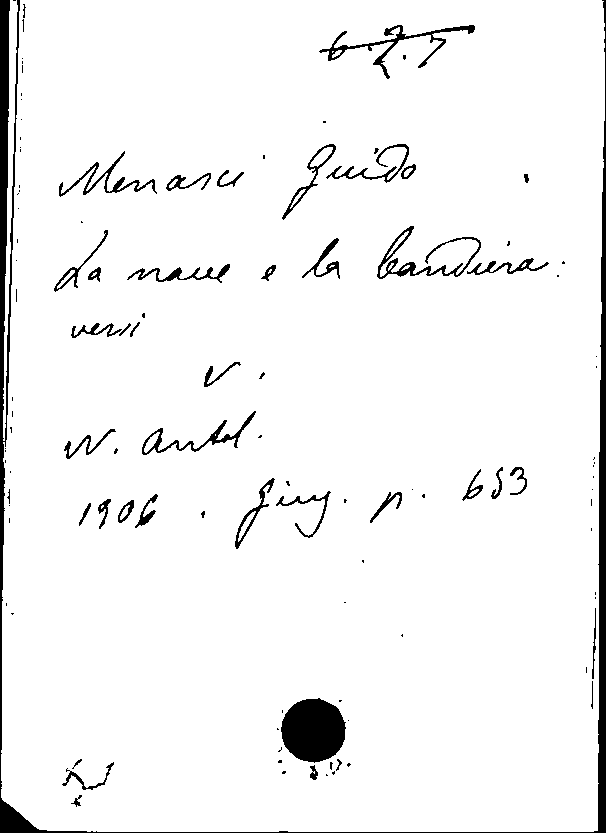 6.2.7
Menasci Guido
La nave e la bandiera:
versi
V.
N. Antol.
1906. Giug. p. 653